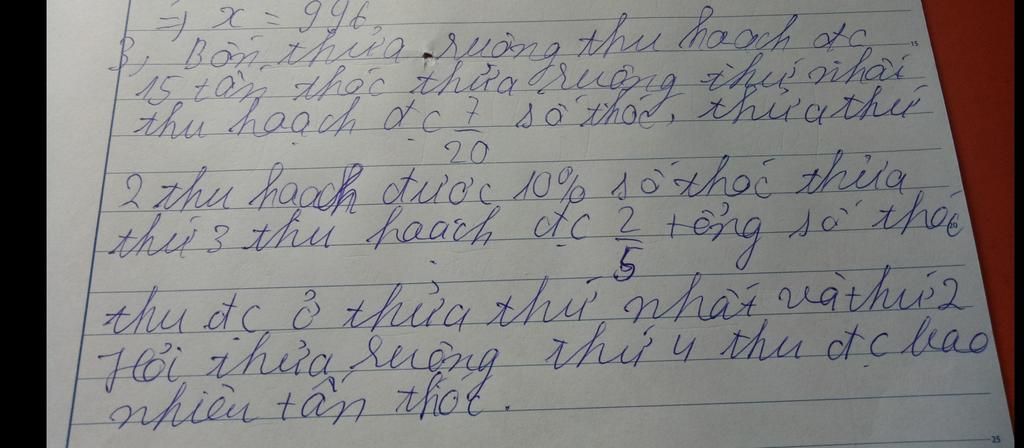 => x = 996
3, Bốn thửa ruộng thu hoạch đc
15 tấn thóc thửa ruộng thứ nhất
thu hoạch đc 7/20 số thóc, thửa thứ
2 thu hoạch được 10% số thóc thửa
thứ 3 thu hoạch đc 2/5 tổng số thóc
thu đc ở thửa thứ nhất và thứ 2
Hỏi thửa ruộng thứ 4 thu đc bao
nhiêu tấn thóc.
25